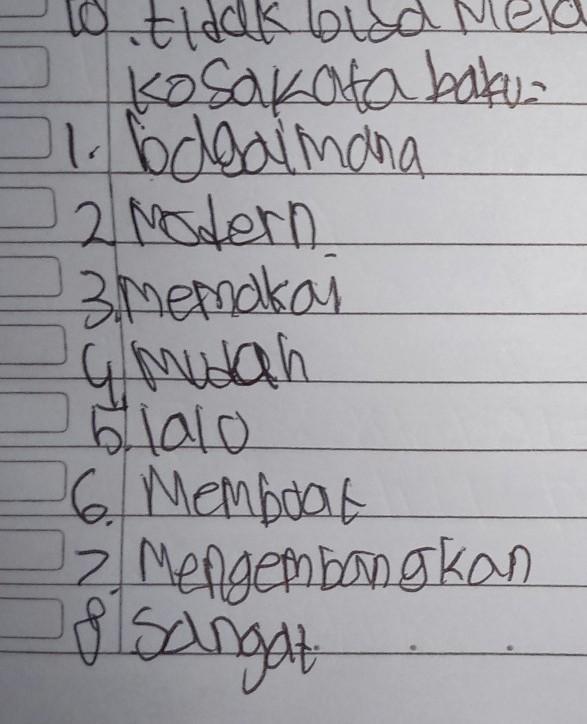 10. tidak bisa Mela
Kosakata baku:
1. bagaimana
2. Modern
3. Memakai
4. Mudah
5. lalo
6. Memboat
7. Mengembangkan
8. Sangat